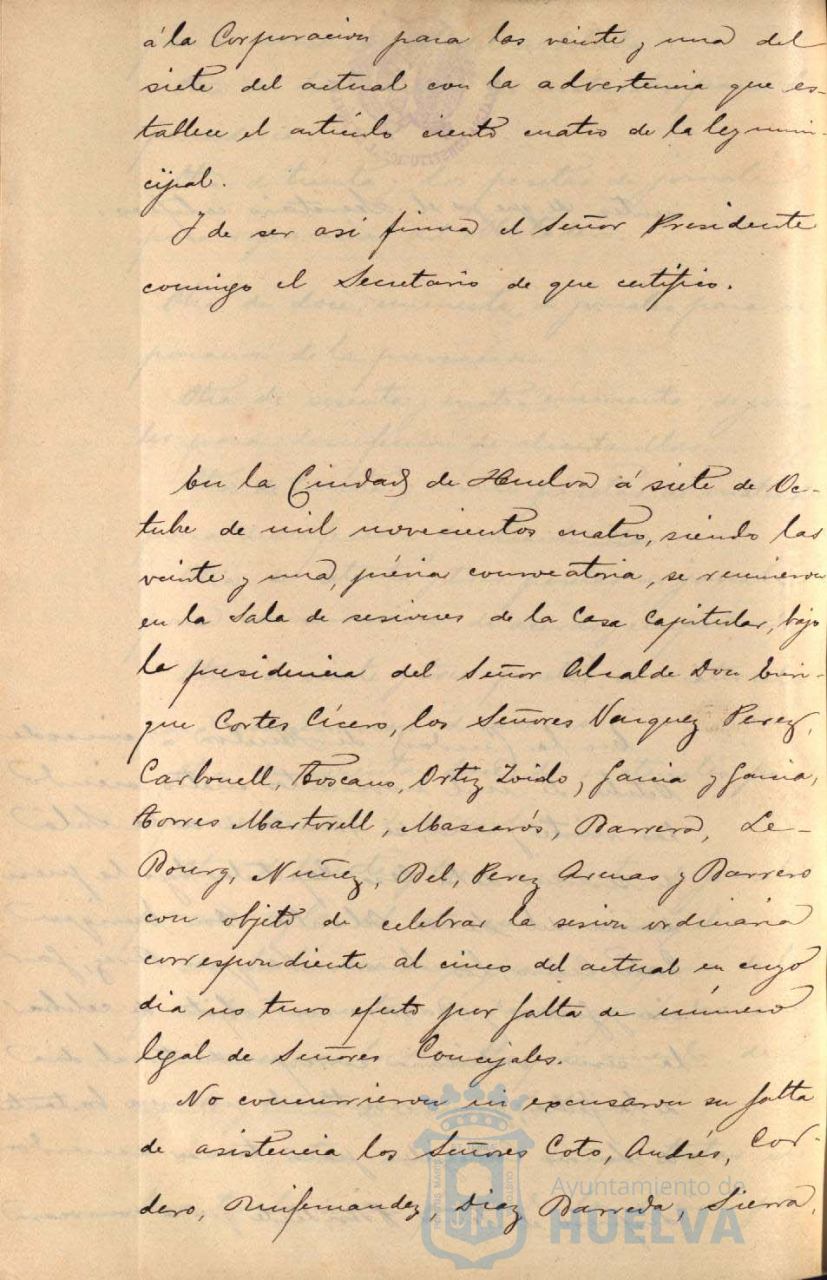 á la Corporacion para las veinte y una del
siete del actual con la advertencia que es-
tablece el artículo ciento cuatro de la ley muni-
cipal.
Y de ser asi firma el Señor Presidente
comigo el Secretario de que certifico.
En la Ciudad de Huelva á siete de Oc-
tubre de mil novecientos cuatro, siendo las
veinte y una, prévia convocatoria, se reunieron
en la Sala de sesiones de la Casa Capitular, bajo
la presidencia del Señor Alcalde Don Enri-
que Cortes Cícero, los Señores Vazquez Perez,
Carbonell, Toscano, Ortiz Toido, Garcia y Garcia,
Torres Martorell, Mascarós, Barrera, Le-
Bourg, Nuñez, Bel, Perez Arenas y Barrero
con objeto de celebrar la sesion ordinaria
correspondiente al cinco del actual en cuyo
dia no tuvo efecto por falta de número
legal de Señores Concejales.
No concurrieron ni excusaron su falta
de asistencia los Señores Coto, Andrés, Cor-
dero, Ruifernandez, Diaz Barreda, Sierra,
Ayuntamiento de
HUELVA